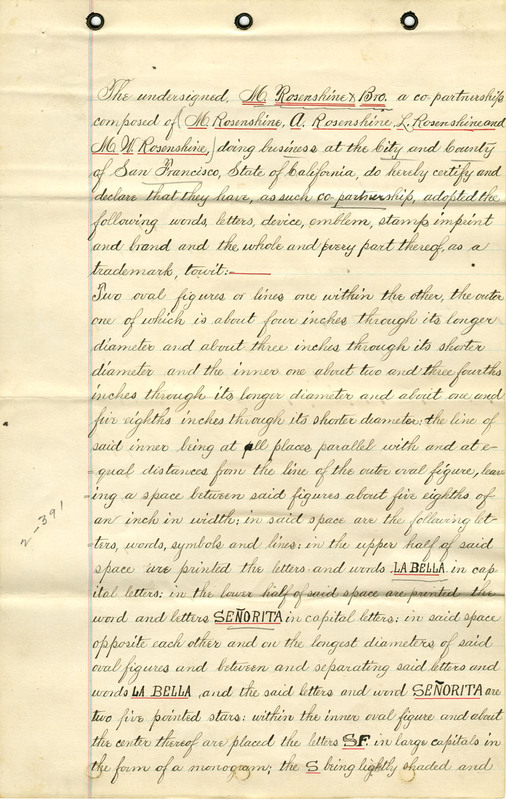 The undersigned, M. Rosenshine & Bro. a co-partnership
composed of (M. Rosenshine, A. Rosenshine, L. Rosenshine and
M. W. Rosenshine,) doing business at the City and County
of San Francisco, State of California, do hereby certify and
declare that they have, as such co-partnership, adopted the
following words, letters, device, emblem, stamp imprint
and brand and the whole and every part thereof, as a
trademark, towit:
Two oval figures or lines one within the other, the outer
one of which is about four inches through its longer
diameter and about three inches through its shorter
diameter and the inner one about two and three fourths
inches through its longer diameter and about one and
five eighths inches through its shorter diameter: the line of
said inner being at all places parallel with and at e-
qual distances from the line of the outer oval figure, leav-
ing a space between said figures about five eighths of
an inch in width; in said space are the following let-
ters, words, symbols and lines: in the upper half of said
space are printed the letters and words LA BELLA in cap-
ital letters: in the lower half of said space are printed the
word and letters SEÑORITA in capital letters: in said space
opposite each other and on the longest diameters of said
oval figures and between and separating said letters and
words LA BELLA, and the said letters and word SEÑORITA are
two five pointed stars: within the inner oval figure and about
the center thereof are placed the letters SF. in large capitals in
the form of a monogram; the S being lightly shaded and
2,391